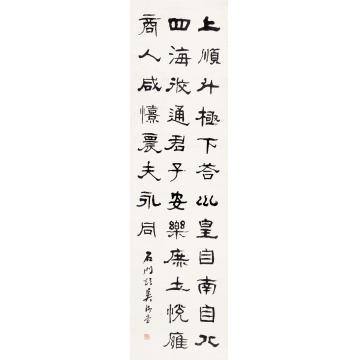 上順斗極下荅巛皇自南自北
四海攸通君子安樂庶士悅雍
商人咸憘農夫永同
石門頌